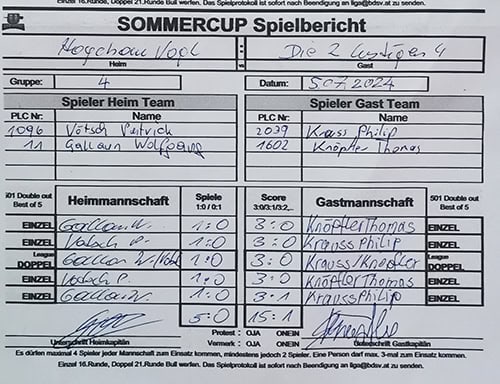 Einzel 16.Runde, Doppel 21.Runde Bull werfen. Das Spielprotokoll ist sofort nach Beendigung an liga@bdsv.at zu senden.
SOMMERCUP Spielbericht
Vogl : Die 2 lustigen 4
Heim Gast
Gruppe: 4 Datum: 5.07.2024
Spieler Heim Team Spieler Gast Team
PLC Nr. Name PLC Nr. Name
1096 Vötsch Patrick 2039 Krauss Philip
11 Gallaun Wolfgang 1602 Knöpfler Thomas
501 Double out Best of 5 Heimmannschaft Spiele 1:0 / 0:1 Score 3:0/3:1/3:2,... Gastmannschaft 501 Double out Best of 5
EINZEL Gallaun W. 1:0 3:0 Knöpfler Thomas EINZEL
EINZEL Vötsch P. 1:0 3:0 Krauss Philip EINZEL
League DOPPEL Gallaun W. 1:0 3:0 Krauss/Knöpfler League DOPPEL
EINZEL Vötsch P. 1:0 3:0 Knöpfler Thomas EINZEL
EINZEL Gallaun W. 1:0 3:1 Krauss Philip EINZEL
5:0 15:1
Protest : OJA ONEIN
Unterschrift Heimkapitän Vermerk : OJA ONEIN Unterschrift Gastkapitän
Es dürfen maximal 4 Spieler jeder Mannschaft zum Einsatz kommen, mindestens jedoch 2 Spieler. Eine Person darf max. 3-mal zum Einsatz kommen.
Einzel 16.Runde, Doppel 21.Runde Bull werfen. Das Spielprotokoll ist sofort nach Beendigung an liga@bdsv.at zu senden.